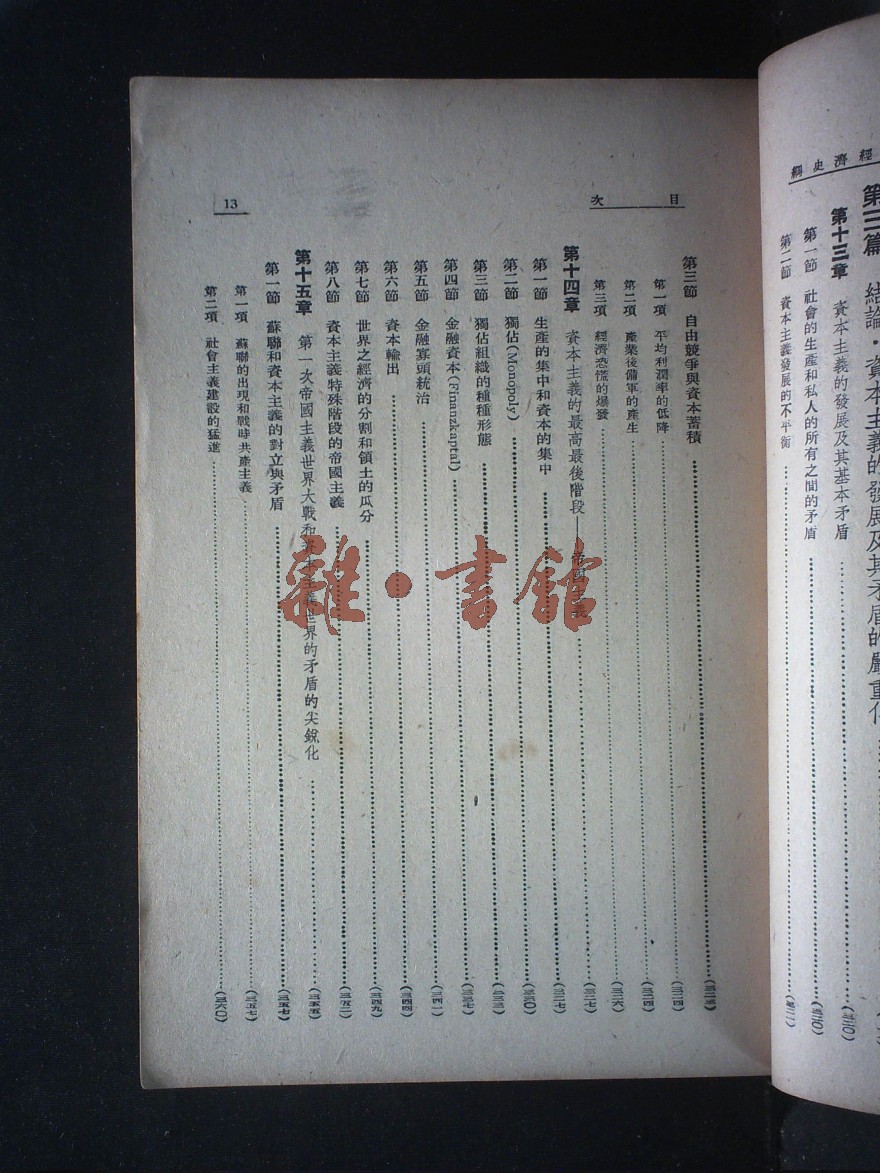 經濟史綱
第三篇 結論·資本主義的發展及其矛盾的嚴重化
第十三章 資本主義的發展及其基本矛盾……(三二〇)
第一節 社會的生產和私人的所有之間的矛盾……(三二〇)
第二節 資本主義發展的不平衡……(三二一)
目次
13
第三節 自由競爭與資本蓄積……(三二三)
第一項 平均利潤率的低降……(三二四)
第二項 產業後備軍的產生……(三二四)
第三項 經濟恐慌的爆發……(三二六)
第十四章 資本主義的最高最後階段——帝國主義……(三二七)
第一節 生產的集中和資本的集中……(三二七)
第二節 獨佔(Monopoly)……(三三〇)
第三節 獨佔組織的種種形態……(三三三)
第四節 金融資本(Finanzkaptal)……(三三七)
第五節 金融寡頭統治……(三四一)
第六節 資本輸出……(三四四)
第七節 世界之經濟的分割和領土的瓜分……(三四九)
第八節 資本主義特殊階段的帝國主義……(三五二)
第十五章 第一次帝國主義世界大戰和資本主義世界的矛盾的尖銳化……(三五五)
第一節 蘇聯和資本主義的對立與矛盾……(三五七)
第一項 蘇聯的出現和戰時共產主義……(三五七)
第二項 社會主義建設的猛進……(三六〇)
雜·書館